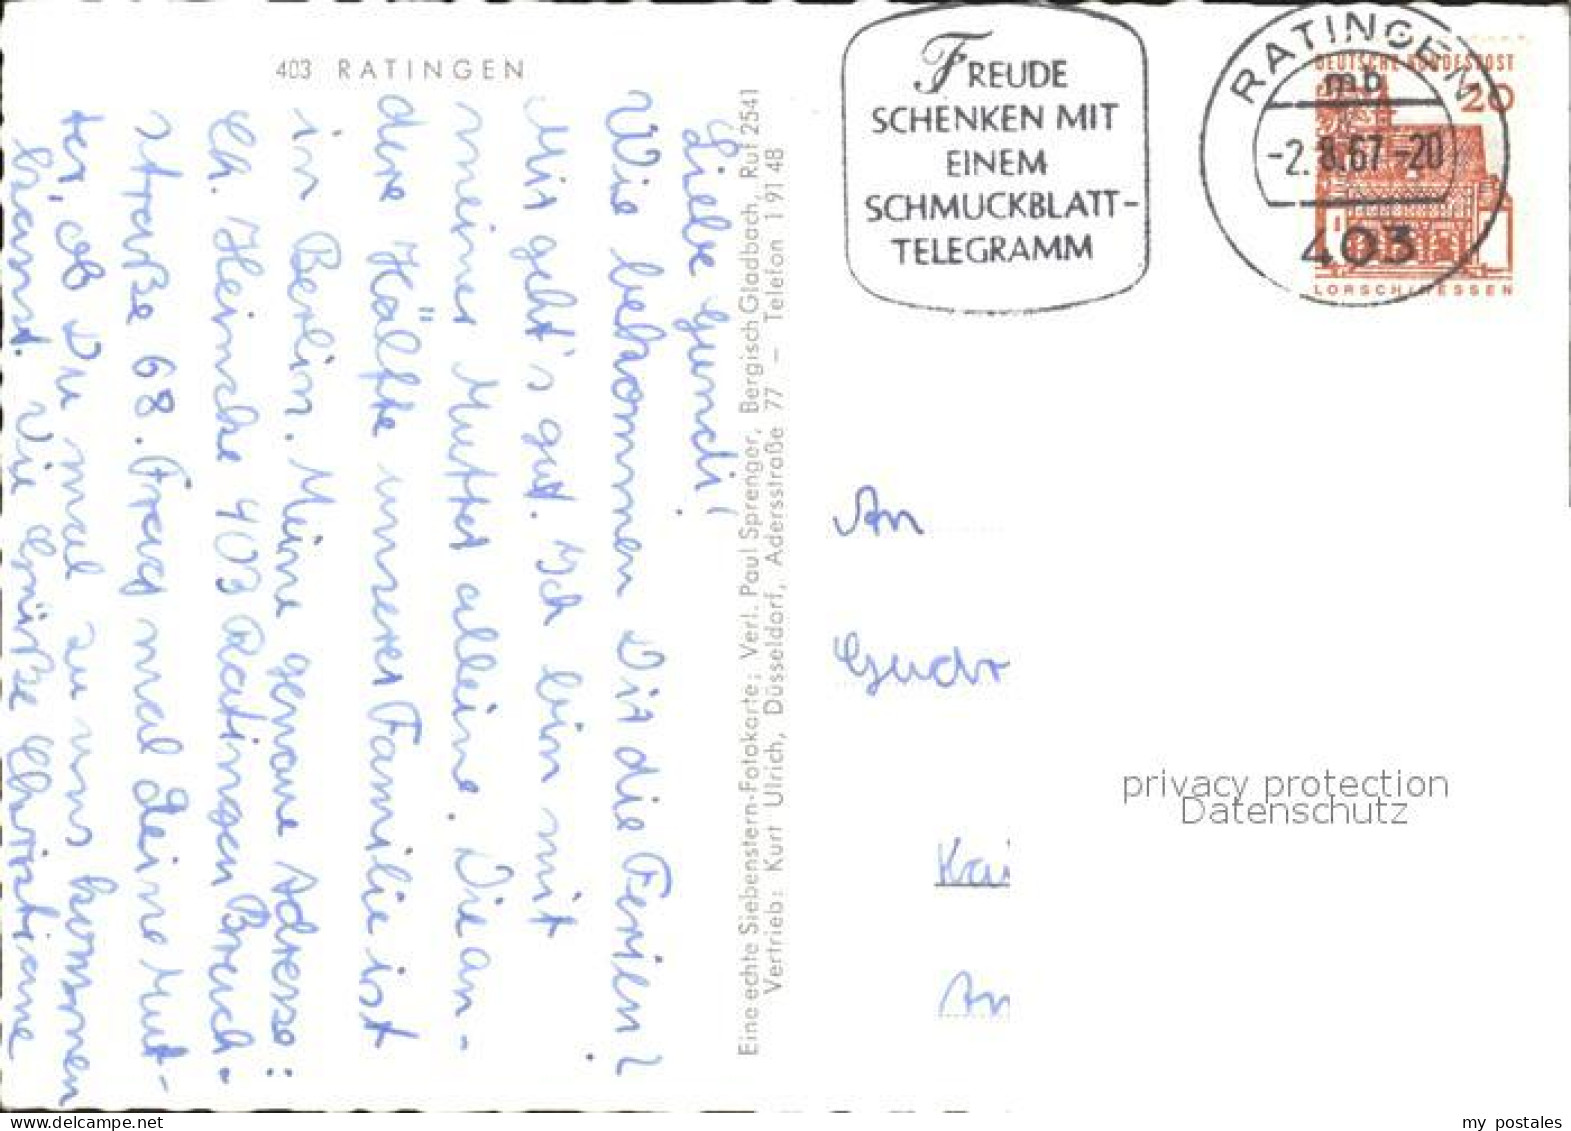 403 RATINGEN
Liebe Gundi!
Wie bekommen Dir die Ferien?
Mir geht's gut. Ich bin mit
meiner Mutter alleine. Die an-
dere Hälfte unserer Familie ist
in Berlin. Meine genaue Adresse:
Ch. Heinske 403 Ratingen Bruch-
straße 68. Frag mal deine Mut-
ter, ob Du mal zu uns kommen
kannst. Vie Grüße Christiane
Eine echte Siebenstern-Fotokarte; Verl. Paul Sprenger, Bergisch Gladbach, Ruf 2541
Vertrieb: Kurt Ulrich, Düsseldorf, Adersstraße 77 – Telefon 1 91 48
FREUDE
SCHENKEN MIT
EINEM
SCHMUCKBLATT-
TELEGRAMM
RATINGEN
mb
-2.8.67-20
403
DEUTSCHE BUNDESPOST
20
LORSCH/HESSEN
An
Gudr
Kai
Am
privacy protection
Datenschutz
www.delcampe.net
my_postales